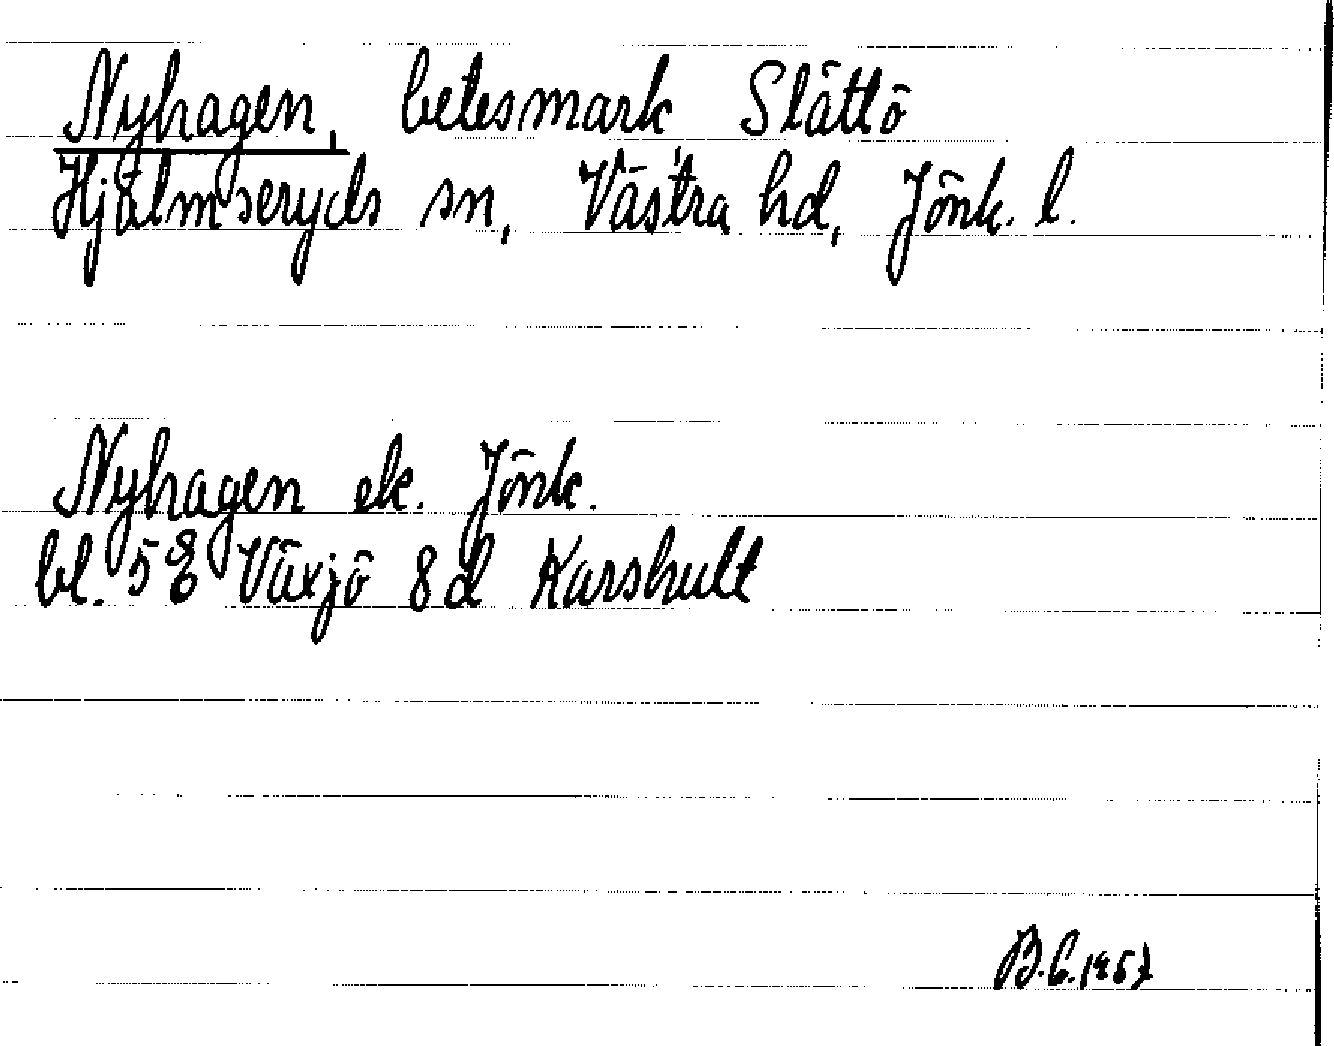 Nyhagen, betesmark, Slättö
Hjälmseryds sn, Västra hd, Jönk. l.
Nyhagen ek. Jönk.
bl. 5 E Växjö 8 d Karshult
B.C. 1957